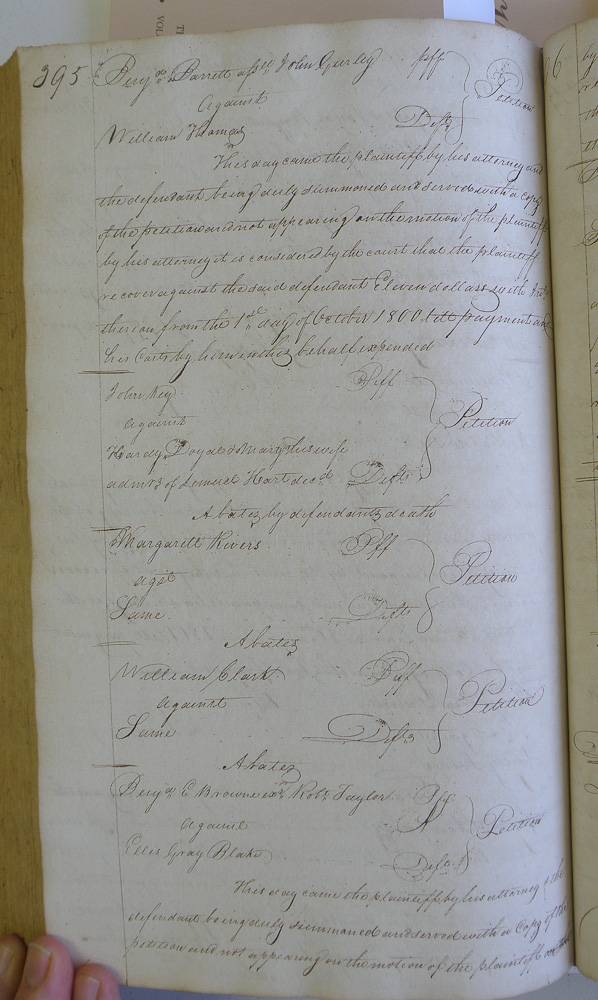 395
Benjn Barrett assee John Gurley Plff
Against Petition
William Thomas Deft
This day came the plaintiff by his attorney and
the defendant being duly summoned and served with a copy
of the petition and not appearing on the motion of the plaintiff
by his attorney it is considered by the court that the plaintiff
recover against the said defendant Eleven dollars with Int
thereon from the 1st day of October 1800 till payment and
his Costs by him in this behalf expended
John Key Plff
Against Petition
Hardy Doyal & Mary his wife
admrs of Lemuel Hart decd Defts
Abates by defendants death
Margarett Rivers Plff
agst Petition
Same Defts
Abates
William Clark Plff
against Petition
Same Defts
Abates
Benjn E Browne exr Robt Taylor Plff
Against Petition
Ellis Gray Blake Deft
This day came the plaintiff by his attorney & the
defendant being duly summoned and served with a Copy of the
petition and not appearing on the motion of the plaintiff